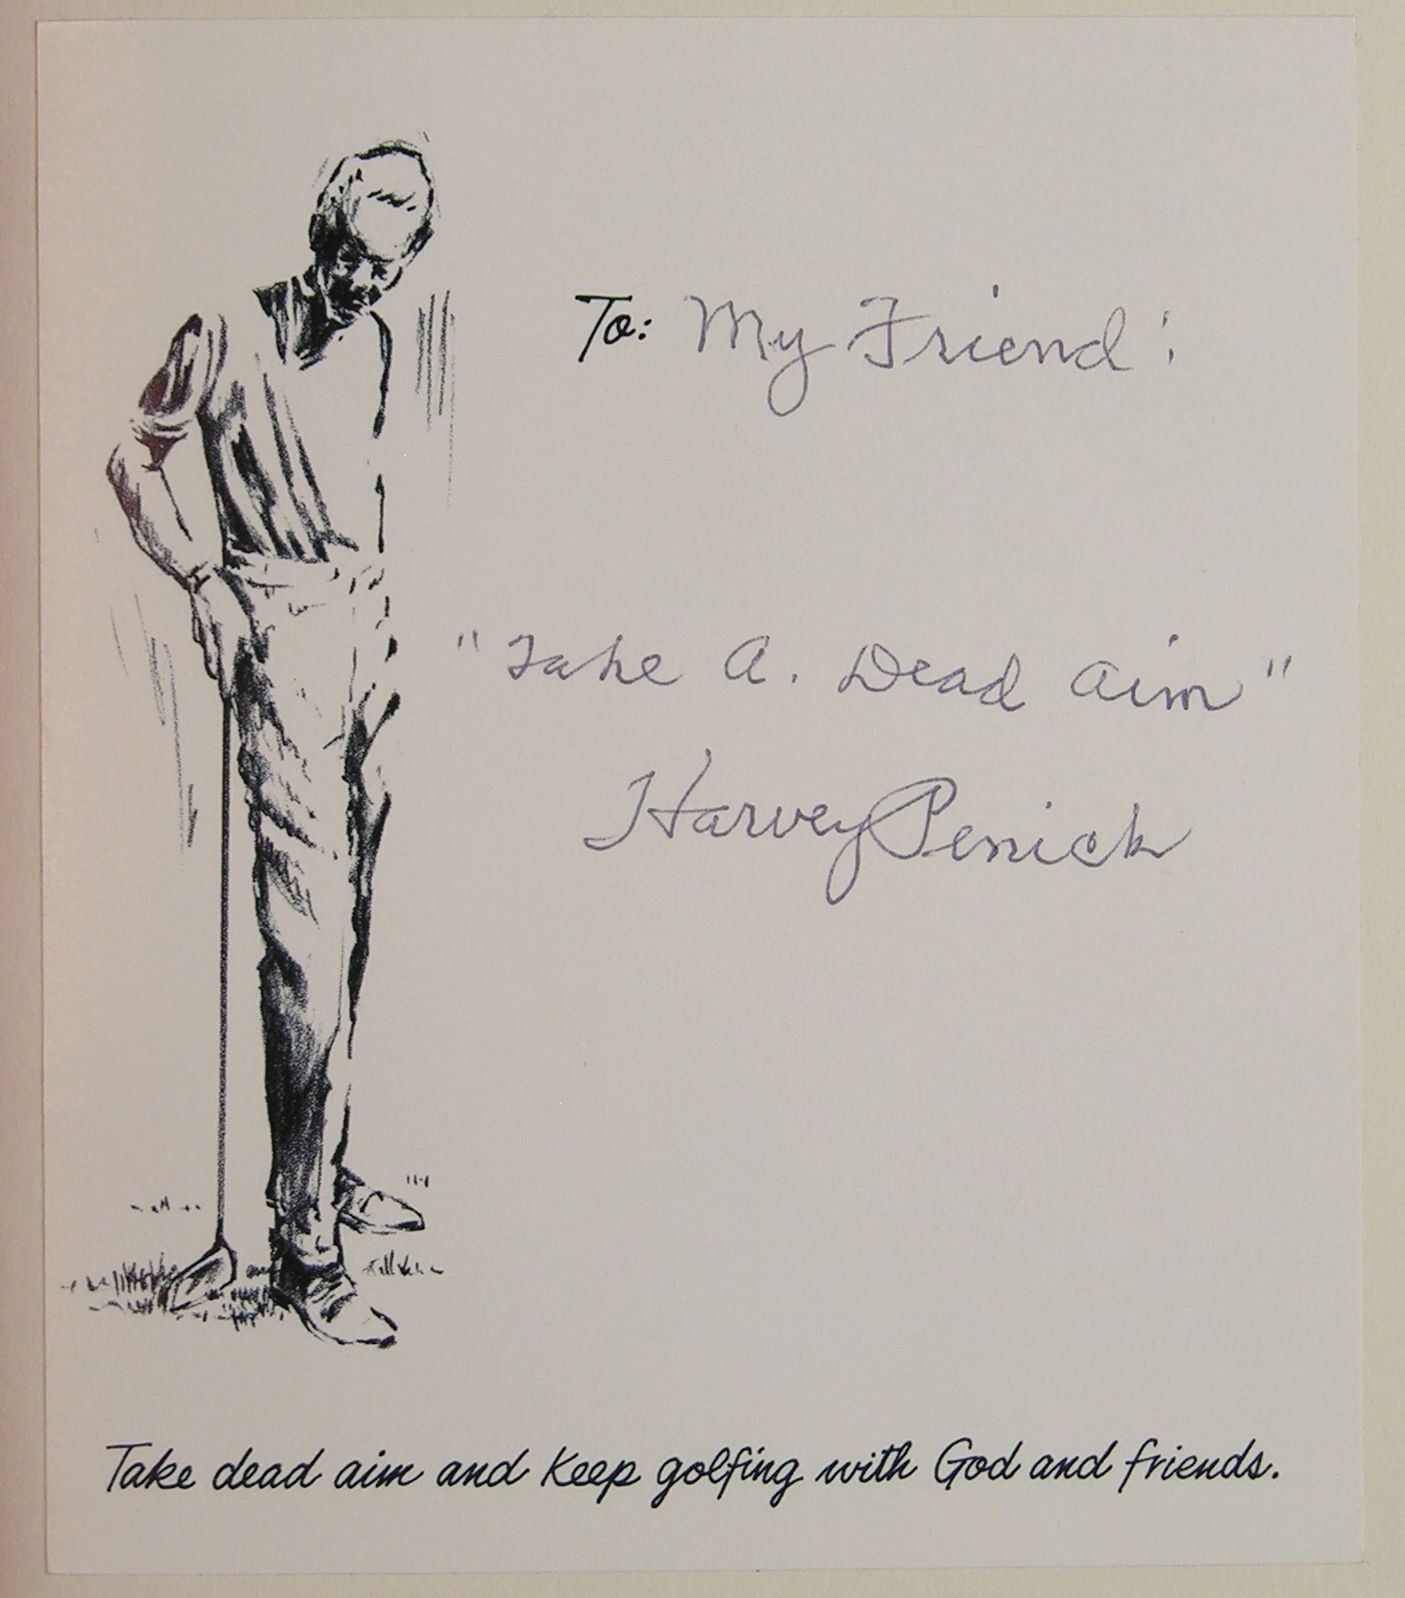 To: My Friend:
"Take A. Dead Aim"
Harvey Penick
Take dead aim and keep golfing with God and friends.